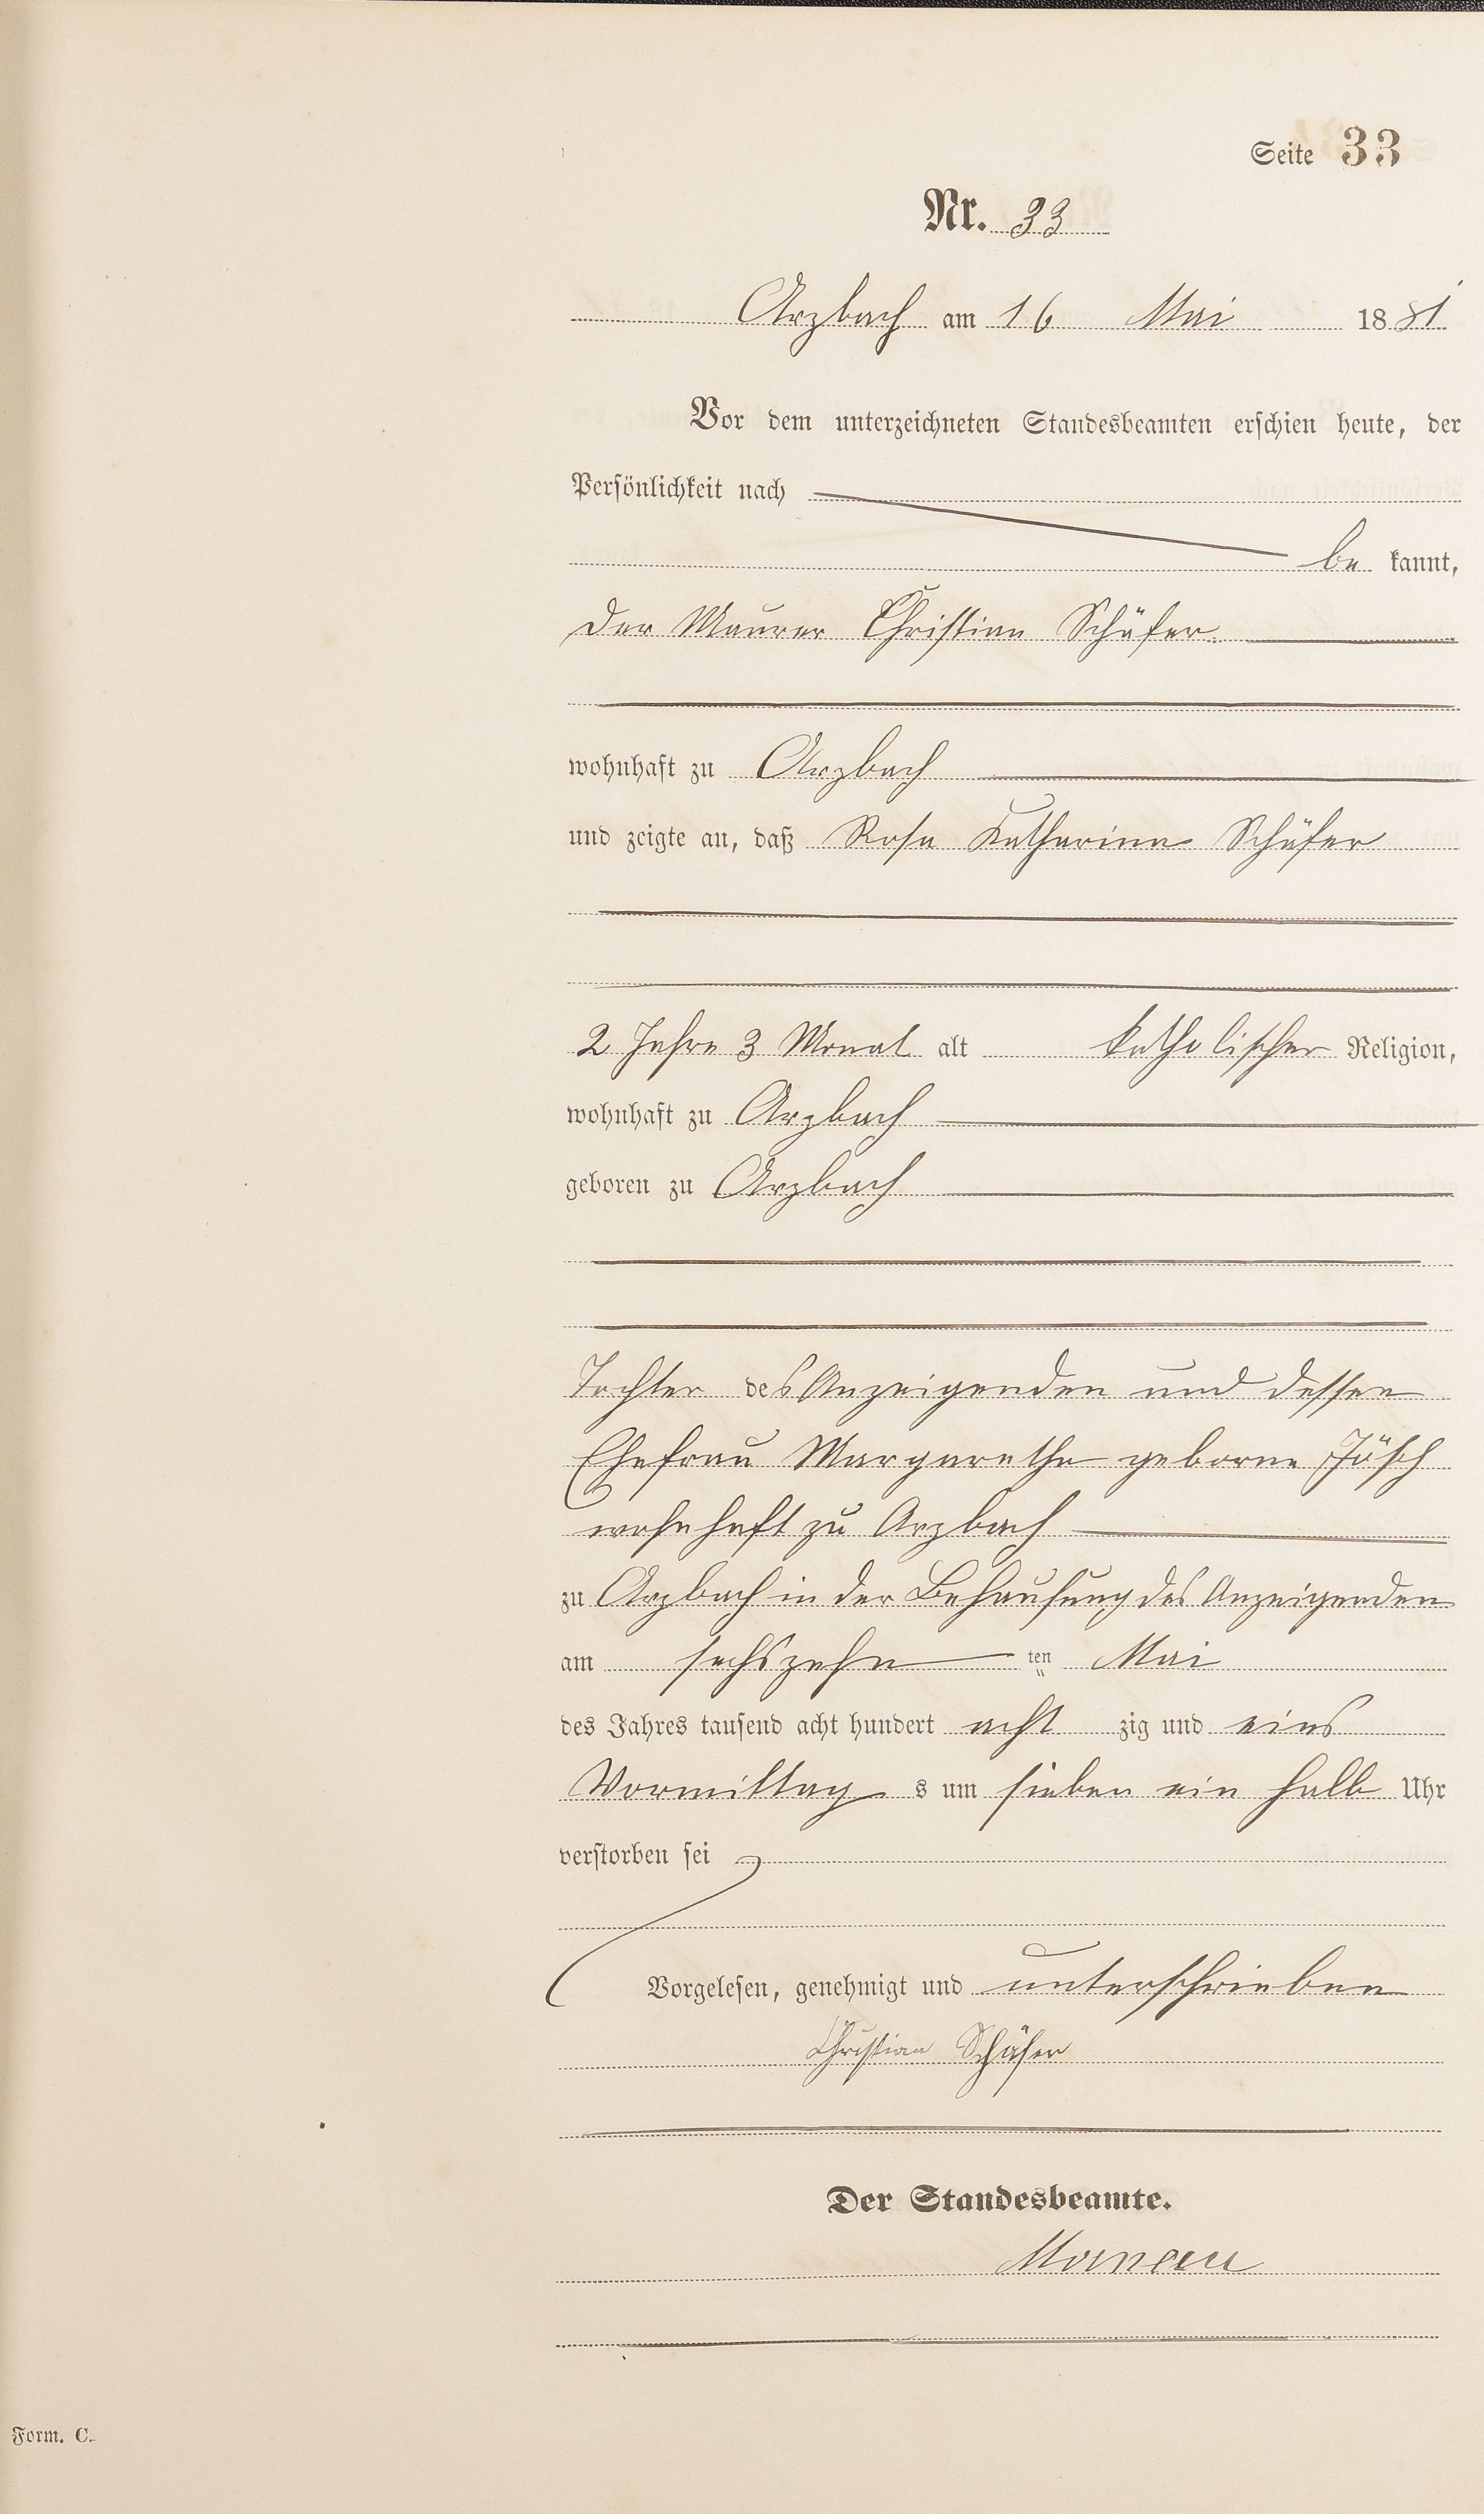 Seite 33
Nr. 33
Arzbach am 16 Mai 1881
Vor dem unterzeichneten Standesbeamten erschien heute, der
Persönlichkeit nach
be kannt,
der Maurer Christian Schäfer
wohnhaft zu Arzbach
und zeigte an, daß Rosa Katharina Schäfer
2 Jahre 3 Monat alt katholischer Religion,
wohnhaft zu Arzbach
geboren zu Arzbach
Tochter des Anzeigenden und dessen
Ehefrau Margarethe geborne
wohnhaft zu Arzbach
zu Arzbach in der Behausung des Anzeigenden
am sechszehn ten Mai
des Jahres tausend acht hundert acht zig und eins
Vormittag s um sieben ein halb Uhr
verstorben sei
Vorgelesen, genehmigt und unterschrieben
Christian Schäfer
Der Standesbeamte.
Form. C.